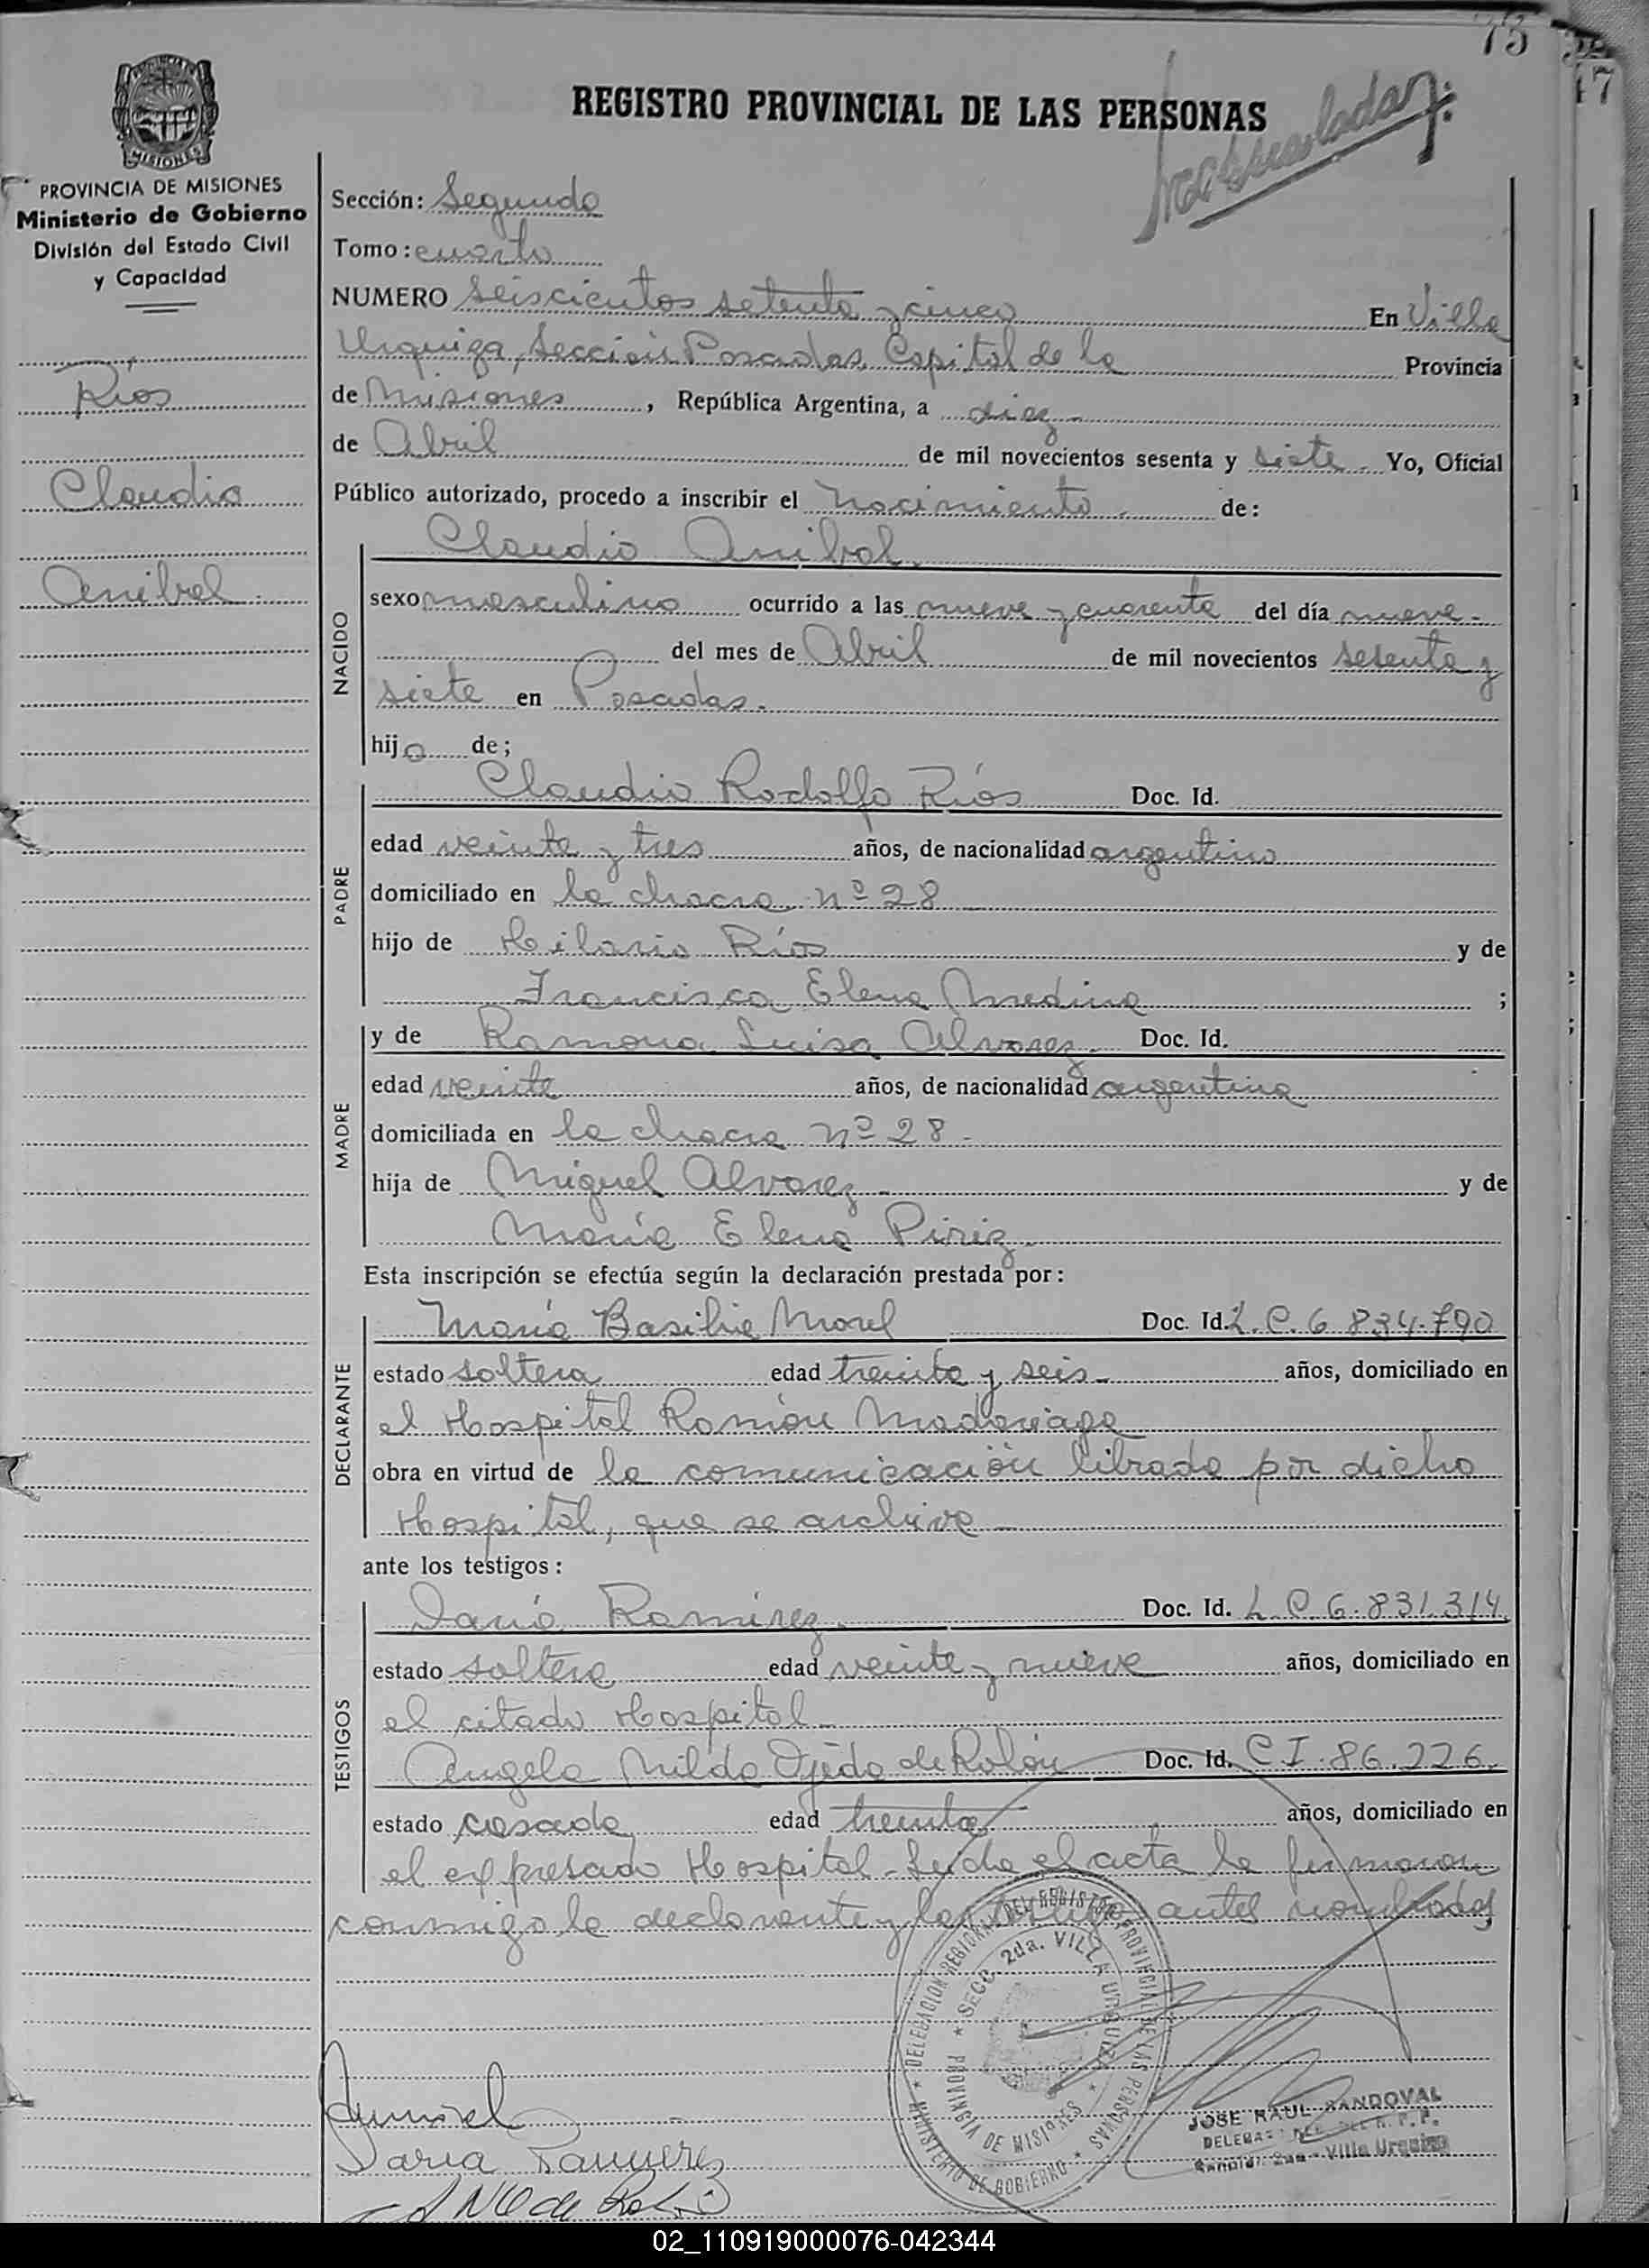 75
47
REGISTRO PROVINCIAL DE LAS PERSONAS
MISIONES
PROVINCIA DE MISIONES
Ministerio de Gobierno
División del Estado Civil
y Capacidad
Ríos
Claudio
Anibal.
Sección: Segunda
Tomo: cuarto
NUMERO Seiscientos setenta y cinco En Villa
Urquiza, Sección Posadas, Capital de la Provincia
de Misiones, República Argentina, a diez
de Abril de mil novecientos sesenta y siete. Yo, Oficial
Público autorizado, procedo a inscribir el nacimiento de:
Claudio Anibal.
NACIDO
sexo masculino ocurrido a las nueve y cuarenta del día nueve
del mes de Abril de mil novecientos sesenta y
siete en Posadas.
hijo de;
PADRE
Claudio Rodolfo Ríos Doc. Id.
edad veinte y tres años, de nacionalidad argentino
domiciliado en la chacra nº 28
hijo de Hilario Ríos y de
Francisca Elena Medina ;
MADRE
y de Ramona Luisa Alvarez. Doc. Id.
edad veinte años, de nacionalidad argentina
domiciliada en la chacra nº 28.
hija de Miguel Alvarez y de
María Elena Piriz.
Esta inscripción se efectúa según la declaración prestada por:
DECLARANTE
María Basilia Morel Doc. Id. L.C. 6.834.790
estado soltera edad treinta y seis años, domiciliado en
el Hospital Ramón Madariaga
obra en virtud de la comunicación librada por dicho
Hospital, que se archiva
ante los testigos:
TESTIGOS
Daria Ramírez. Doc. Id. L.C. 6.831.314
estado soltera edad veinte y nueve años, domiciliado en
el citado Hospital
Angela Nilda Ojeda de Rolón Doc. Id. C.I. 86.226.
estado casada edad treinta años, domiciliado en
el expresado Hospital. Leida el acta la firmaron
conmigo la declarante y los testigos antes nombrados
DELEGACION REGIONAL DEL REGISTRO PROVINCIAL DE LAS PERSONAS
MINISTERIO DE GOBIERNO
SECC. 2da. VILLA URQUIZA
PROVINCIA DE MISIONES
Daria Ramirez
JOSE RAUL SANDOVAL
Villa Urquiza
02_110919000076-042344